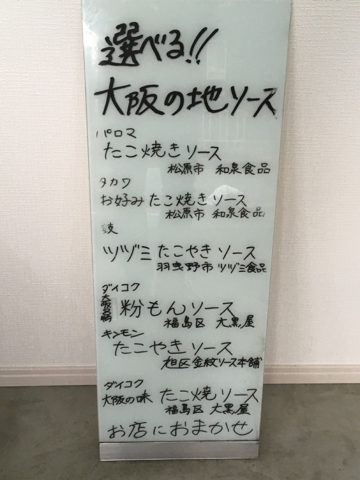 選べる!!
大阪の地ソース
パロマ
たこ焼きソース
松原市 和泉食品
タカワ
お好みたこ焼きソース
松原市 和泉食品
ツヅミたこやきソース
羽曳野市 ツヅミ食品
ダイコク
粉もんソース
福島区 大黒屋
キンモン
たこやきソース
旭区金紋ソース本舗
ダイコク
大阪の味 たこ焼ソース
福島区 大黒屋
お店におまかせ